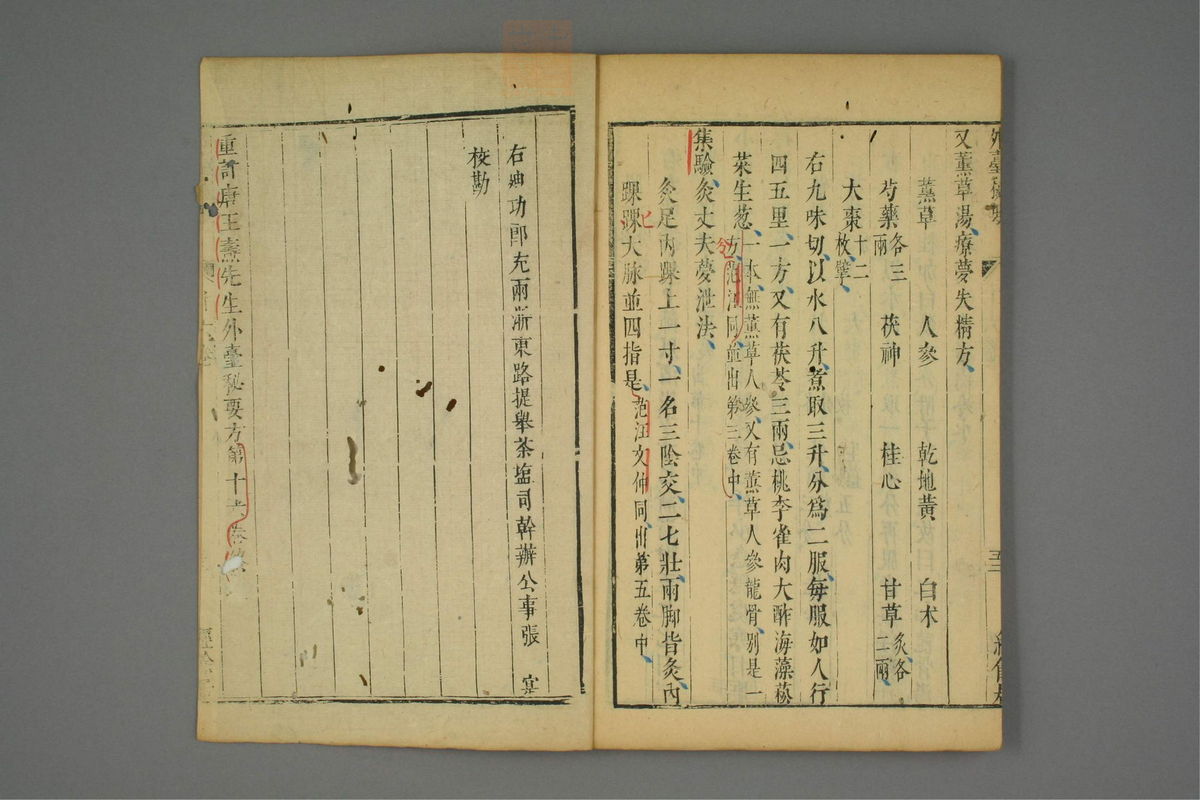 又薰草湯療夢失精方
薰草　人參　乾地黃　白朮
芍藥各三兩　茯神　桂心　甘草炙各二兩
大棗十二枚擘
右九味切以水八升煮取三升分爲二服每服如人行
四五里一方又有茯苓三兩忌桃李雀肉大酢海藻菘
菜生葱一本無薰草人參又有薰草人參龍骨别是一
方范汪同並出第三卷中
集驗灸丈夫夢泄法
灸足內踝上一寸一名三陰交二七壯兩脚皆灸內
踝踝大脉並四指是范汪文仲同出第五卷中
五二
右迪功郎充兩浙東路提舉茶塩司幹辦公事張　寔
校勘
重訂唐王燾先生外臺秘要方第十六卷